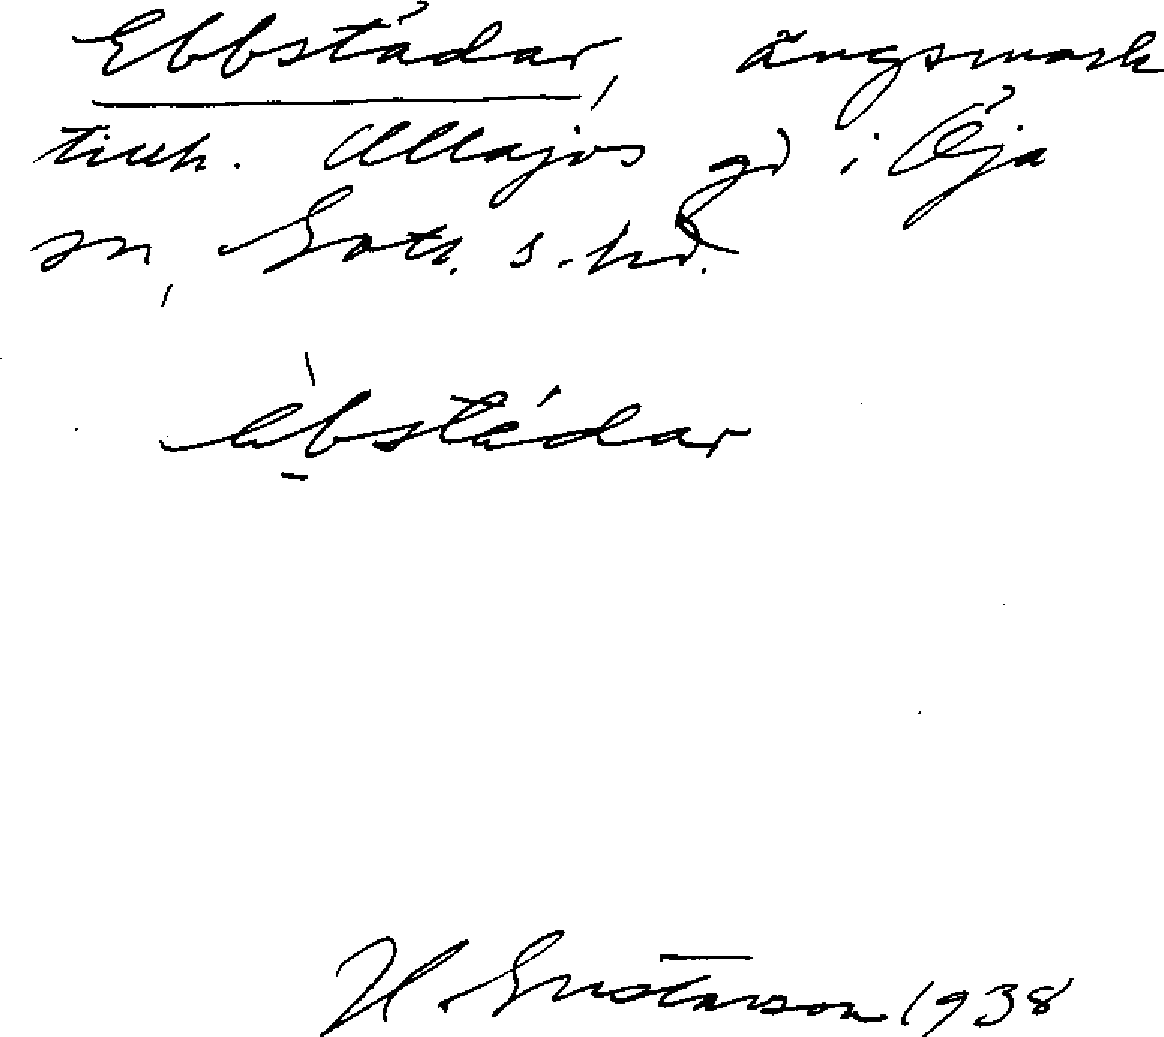 Ebbstädar, ängsmark
tillh. Ullajvs gd i Öja
sn, Gotl. s. hd.
ebstädar
H. Gustavson 1938